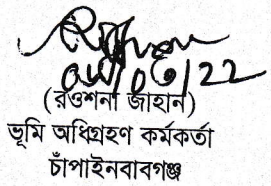 (রওশনা জাহান)
ভূমি অধিগ্রহণ কর্মকর্তা
চাঁপাইনবাবগঞ্জ